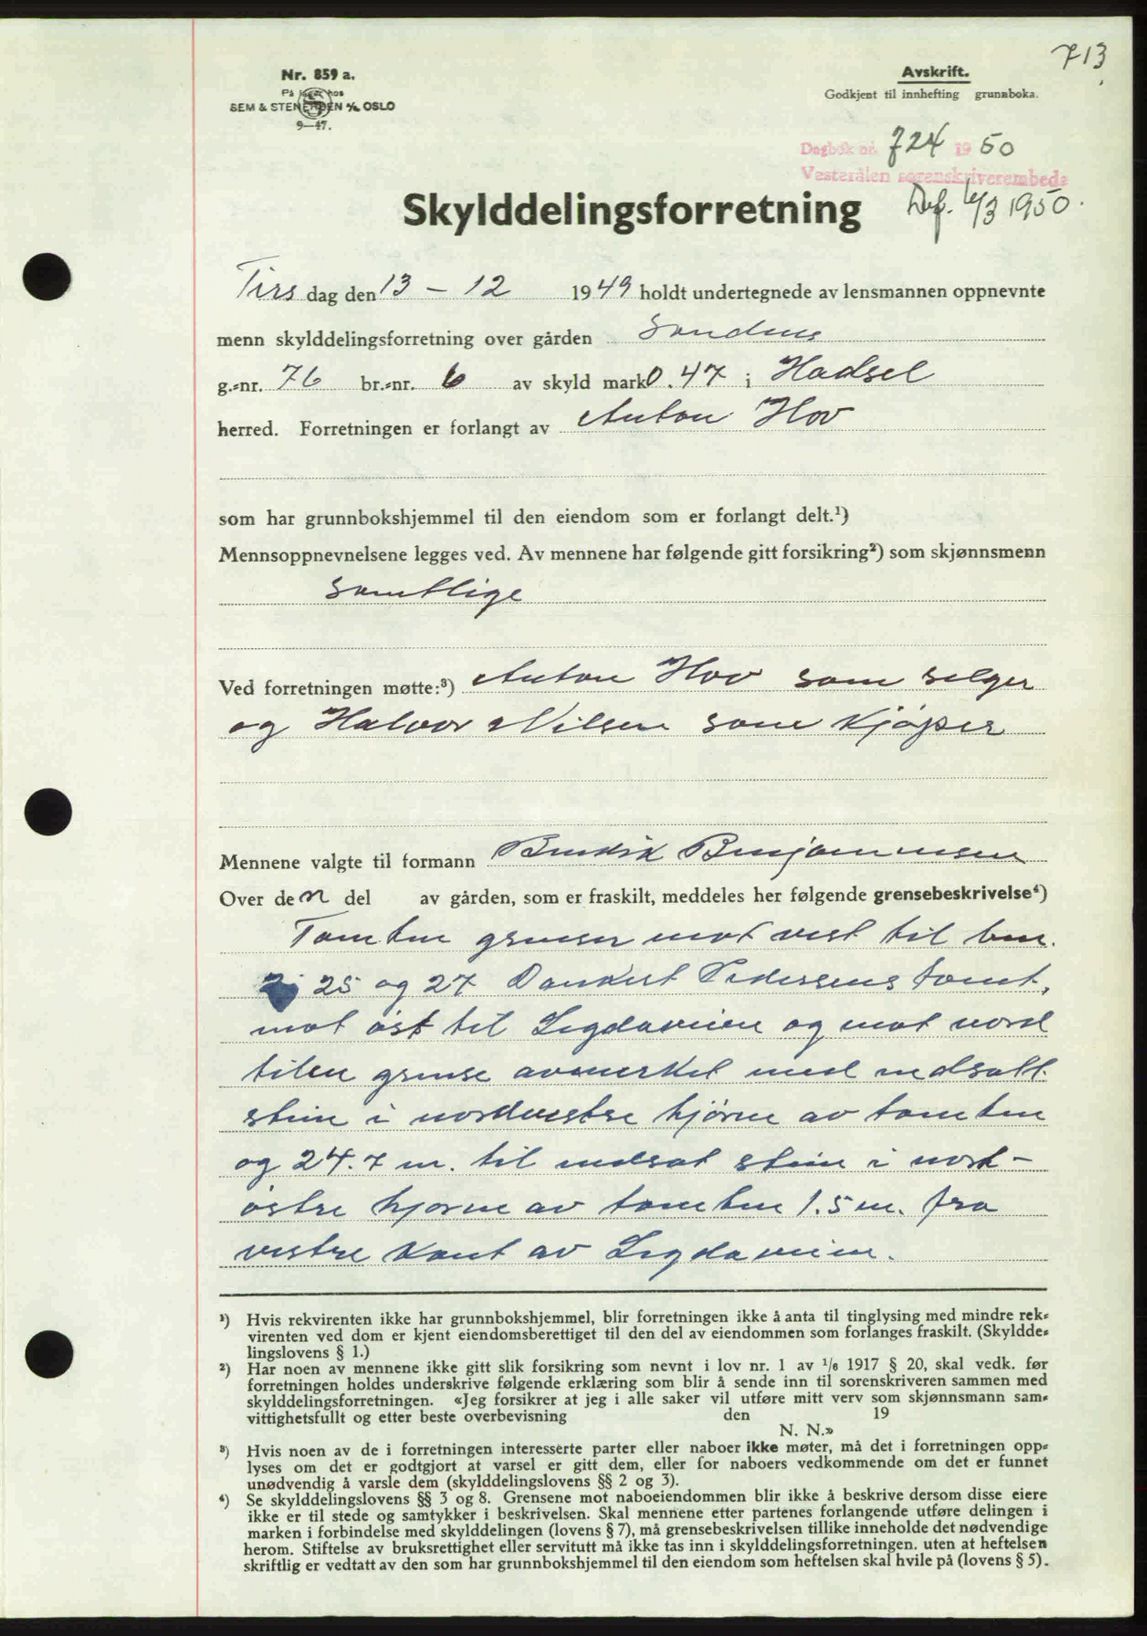 713
Nr. 859 a.
På lager hos
SEM & STENERSEN A/S OSLO
9—47.
Avskrift.
Godkjent til innhefting grunnboka.
Dagbok nr. 724 1950
Vesterålen sorenskriverembede
Skylddelingsforretning
6/3 1950.
Tirsdag den 13 – 12 1949 holdt undertegnede av lensmannen oppnevnte
menn skylddelingsforretning over gården Sandnes
g.=nr. 76 br.=nr. 6 av skyld mark 0.47 i Hadsel
herred. Forretningen er forlangt av Anton Hov
som har grunnbokshjemmel til den eiendom som er forlangt delt.¹)
Mennsoppnevnelsene legges ved. Av mennene har følgende gitt forsikring²) som skjønnsmenn
samtlige
Ved forretningen møtte:³) Anton Hov som selger
og Halvor Nilsen som kjøper
Mennene valgte til formann Bendik Benjaminsen
Over den del av gården, som er fraskilt, meddeles her følgende grensebeskrivelse⁴)
Tomten grenser mot vest til bnr.
25 og 27 Dankert Pedersens tomt,
mot øst til Ligdaveien og mot nord
til en grense avmerket med nedsatt
stein i nordvestre hjørne av tomten
og 24.7 m. til nedsat stein i nord-
østre hjørne av tomten 1.5 m. fra
vestre kant av Ligdaveien.
¹) Hvis rekvirenten ikke har grunnbokshjemmel, blir forretningen ikke å anta til tinglysing med mindre rek=
virenten ved dom er kjent eiendomsberettiget til den del av eiendommen som forlanges fraskilt. (Skyldde=
lingslovens § 1.)
²) Har noen av mennene ikke gitt slik forsikring som nevnt i lov nr. 1 av 1/6 1917 § 20, skal vedk. før
forretningen holdes underskrive følgende erklæring som blir å sende inn til sorenskriveren sammen med
skylddelingsforretningen. «Jeg forsikrer at jeg i alle saker vil utføre mitt verv som skjønnsmann sam=
vittighetsfullt og etter beste overbevisning den 19
N. N.»
³) Hvis noen av de i forretningen interesserte parter eller naboer ikke møter, må det i forretningen opp=
lyses om det er godtgjort at varsel er gitt dem, eller for naboers vedkommende om det er funnet
unødvendig å varsle dem (skylddelingslovens §§ 2 og 3).
⁴) Se skylddelingslovens §§ 3 og 8. Grensene mot naboeiendommen blir ikke å beskrive dersom disse eiere
ikke er til stede og samtykker i beskrivelsen. Skal mennene etter partenes forlangende utføre delingen i
marken i forbindelse med skylddelingen (lovens § 7), må grensebeskrivelsen tillike inneholde det nødvendige
herom. Stiftelse av bruksrettighet eller servitutt må ikke tas inn i skylddelingsforretningen. uten at heftelsen
skriftlig er vedtatt av den som har grunnbokshjemmel til den eiendom som heftelsen skal hvile på (lovens § 5).